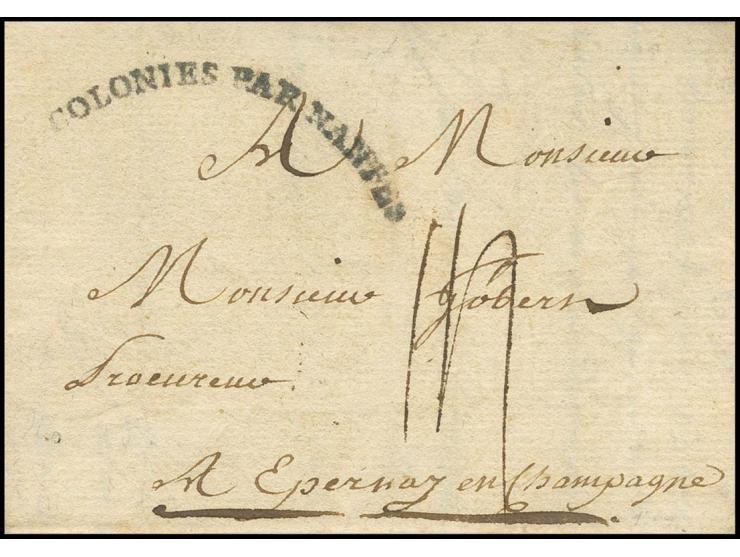 COLONIES PAR NANTES
A Monsieur
Monsieur Gobern
Procureur
A Epernay en Champagne